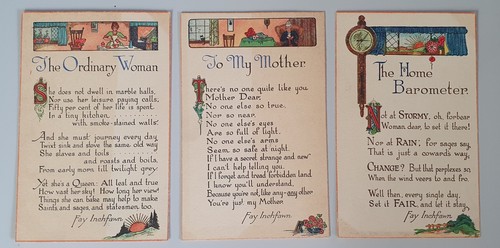 The Ordinary Woman
She does not dwell in marble halls,
Nor use her leisure paying calls;
Fifty per cent of her life is spent
In a tiny kitchen,
with smoke-stained walls.
And she must journey every day
Twixt sink and stove the same old way
She slaves and boils
and roasts and boils,
From early morn till twilight grey.
Yet she's a Queen: All leal and true
How vast her sky! How long her view!
Things she can bake may help to make
Saints and sages, and statesmen too.
Fay Inchfawn
To My Mother
There's no one quite like you,
Mother Dear,
No one else so true,
Nor so near.
No one else's eyes
Are so full of light,
No one else's arms
Seem so safe at night.
If I have a secret strange and new
I can't help telling you.
If I forget and tread forbidden land,
I know you'll understand,
Because you're not like any other
You're just my Mother
Fay Inchfawn
The Home
Barometer.
Not at STORMY, oh, forbear
Woman, dear, to set it there!
Nor at RAIN, for sages say,
That is just a cowards way,
CHANGE? But that perplexes so
When the wind veers to and fro.
Well then, every single day,
Set it FAIR, and let it stay.
Fay Inchfawn